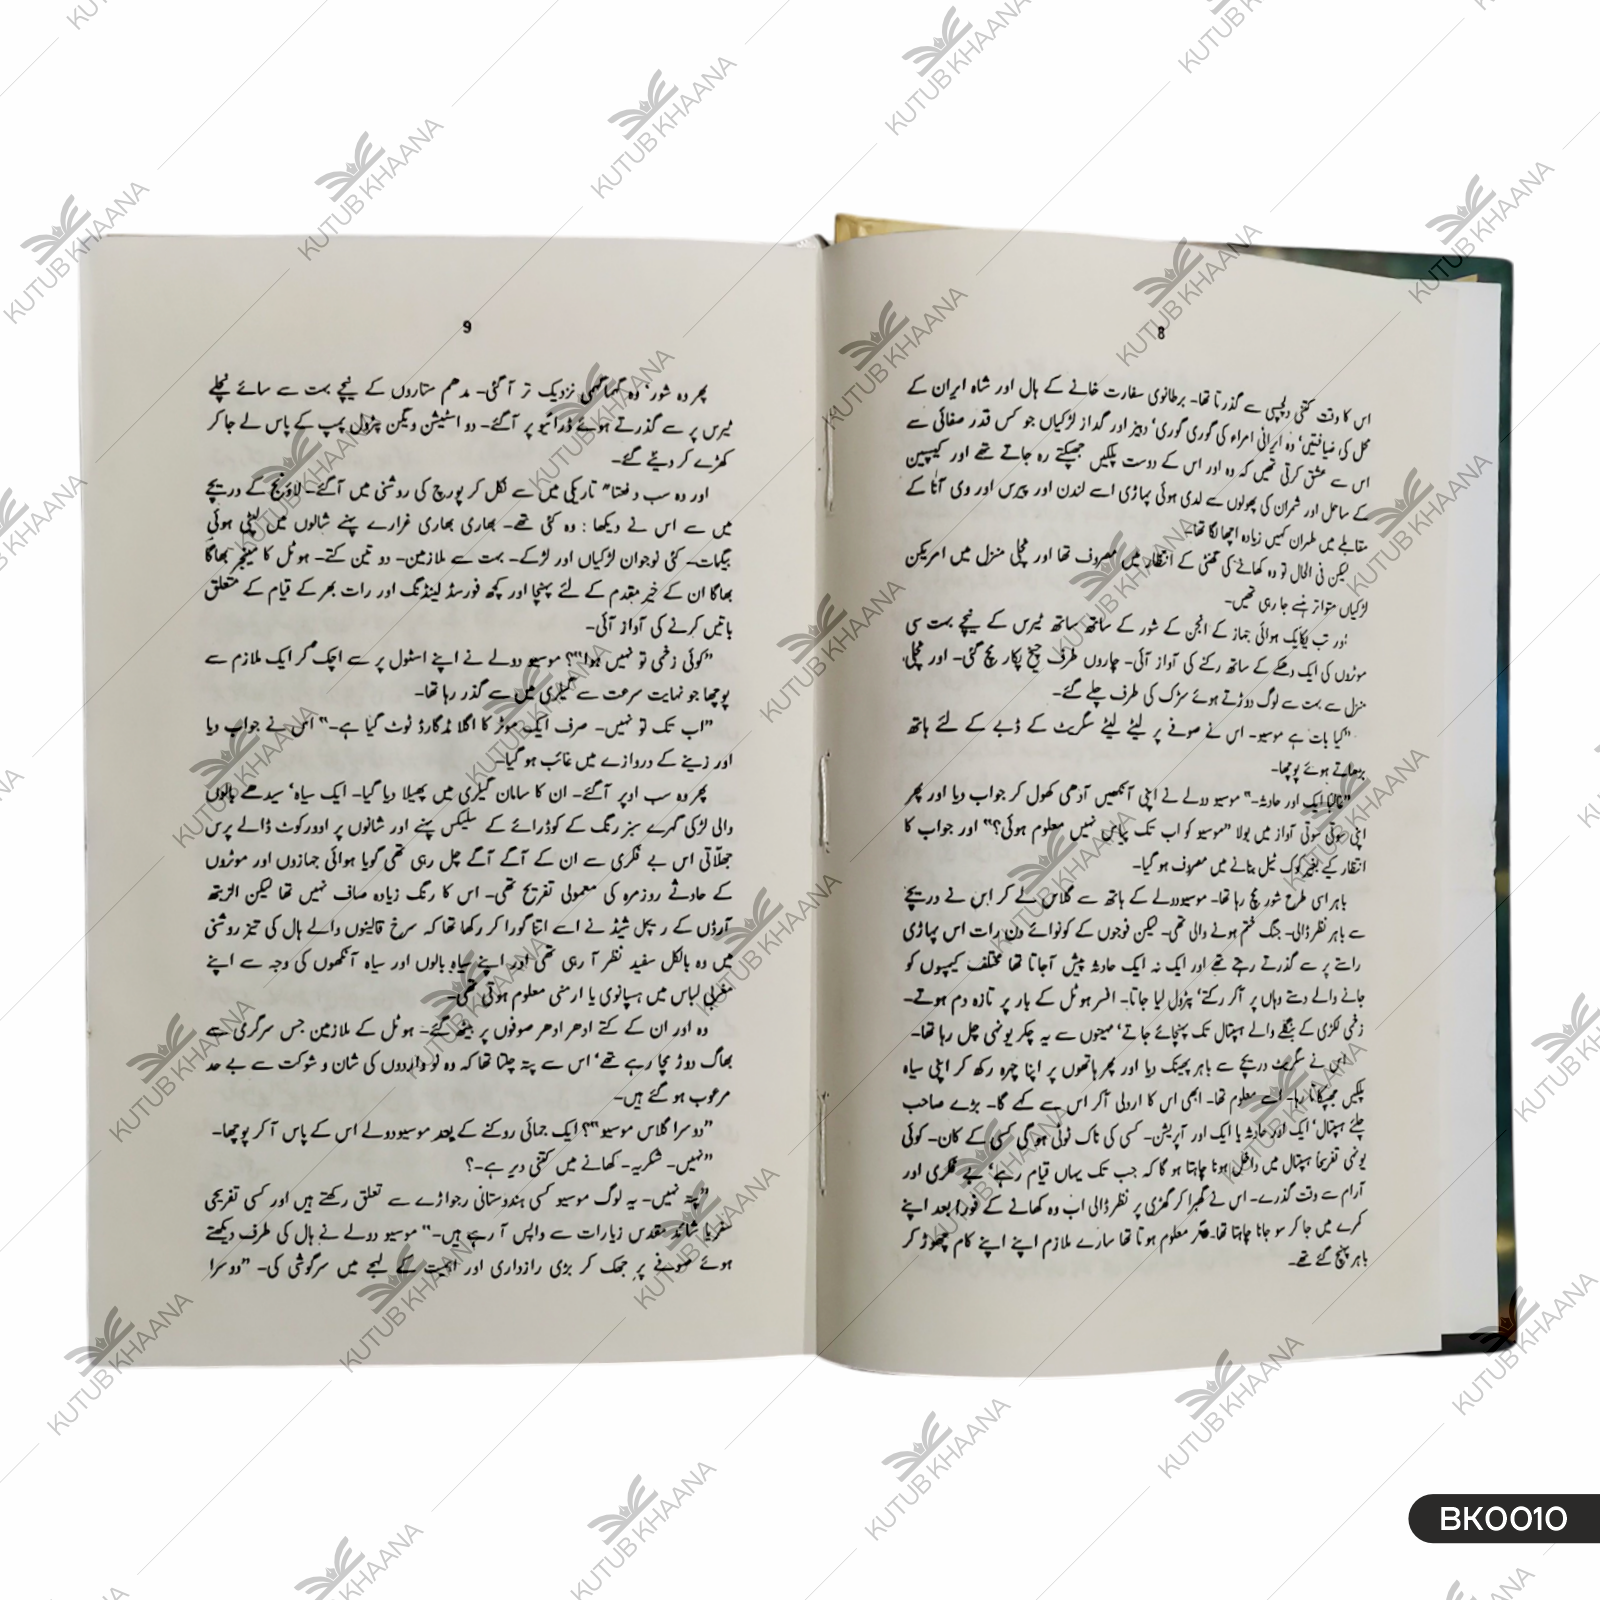 8
اس کا وقت کتنی دلچسپی سے گذرتا تھا۔ برطانوی سفارت خانے کے ہال اور شاہ ایران کے
محل کی ضیافتیں، وہ ایرانی امراء کی گوری گوری، دبیز اور گداز لڑکیاں جو کس قدر صفائی سے
اس سے عشق کرتی تھیں کہ وہ اور اس کے دوست پلکیں جھپکتے رہ جاتے تھے اور کیسپین
کے ساحل اور شمران کی پھولوں سے لدی ہوئی پہاڑی اسے لندن اور پیرس اور وی آنا کے
مقابلے میں طہران کہیں زیادہ اچھا لگا تھا۔
لیکن فی الحال تو وہ کھانے کی گھنٹی کے انتظار میں مصروف تھا اور نچلی منزل میں امریکن
لڑکیاں متواتر ہنسے جا رہی تھیں۔
اور تب یکایک ہوائی جہاز کے انجن کے شور کے ساتھ ساتھ ٹیرس کے نیچے بہت سی
موٹروں کی ایک دھکے کے ساتھ رکنے کی آواز آئی۔ چاروں طرف چیخ پکار مچ گئی۔ اور نچلی
منزل سے بہت سے لوگ دوڑتے ہوئے سڑک کی طرف چلے گئے۔
"کیا بات ہے موسیو۔ اس نے صوفے پر لیٹے لیٹے سگریٹ کے ڈبے کے لئے ہاتھ
بڑھاتے ہوئے پوچھا۔
"غالباً ایک اور حادثہ۔" موسیو دولے نے اپنی آنکھیں آدھی کھول کر جواب دیا اور پھر
اپنی سوتی سوتی آواز میں بولا "موسیو کو اب تک پیاس نہیں معلوم ہوئی؟" اور جواب کا
انتظار کیے بغیر کوک ٹیل بنانے میں مصروف ہو گیا۔
باہر اسی طرح شور مچ رہا تھا۔ موسیودولے کے ہاتھ سے گلاس لے کر اس نے دریچے
سے باہر نظر ڈالی۔ جنگ ختم ہونے والی تھی۔ لیکن فوجوں کے کونوائے دن رات اس پہاڑی
راستے پر سے گذرتے رہتے تھے اور ایک نہ ایک حادثہ پیش آجاتا تھا مختلف کیمپوں کو
جانے والے دستے وہاں پر آکر رکتے، پٹرول لیا جاتا۔ افسر ہوٹل کے بار پر تازہ دم ہوتے۔
زخمی لکڑی کے بنگلے والے ہسپتال تک پہنچائے جاتے، مہینوں سے یہ چکر یونہی چل رہا تھا۔
اس نے سگریٹ دریچے سے باہر پھینک دیا اور پھر ہاتھوں پر اپنا چہرہ رکھ کر اپنی سیاہ
پلکیں جھپکاتا رہا۔ اسے معلوم تھا۔ ابھی اس کا اردلی آکر اس سے کہے گا۔ بڑے صاحب
چلئے ہسپتال، ایک اور حادثہ یا ایک اور آپریشن۔ کسی کی ناک ٹوٹی ہوگی کسی کے کان۔ کوئی
یونہی تفریحاً ہسپتال میں داخل ہونا چاہتا ہو گا کہ جب تک یہاں قیام رہے، بے فکری اور
آرام سے وقت گذرے۔ اس نے گھبرا کر گھڑی پر نظر ڈالی اب وہ کھانے کے فوراً بعد اپنے
کمرے میں جا کر سو جانا چاہتا تھا۔ مگر معلوم ہوتا تھا سارے ملازم اپنے اپنے کام چھوڑ کر
باہر پہنچ گئے تھے۔
9
پھر وہ شور، وہ گہما گہمی نزدیک تر آگئی۔ مدھم ستاروں کے نیچے بہت سے سائے نچلے
ٹیرس پر سے گذرتے ہوئے ڈرائیو پر آگئے۔ دو اسٹیشن ویگن پٹرول پمپ کے پاس لے جا کر
کھڑے کر دیئے گئے۔
اور وہ سب دفعتاً تاریکی میں سے نکل کر پورچ کی روشنی میں آگئے۔ لاؤنج کے دریچے
میں سے اس نے دیکھا : وہ کئی تھے۔ بھاری بھاری غرارے پہنے شالوں میں لپٹی ہوئی
بیگمات۔ کئی نوجوان لڑکیاں اور لڑکے۔ بہت سے ملازمین۔ دو تین کتے۔ ہوٹل کا مینیجر بھاگا
بھاگا ان کے خیر مقدم کے لئے پہنچا اور کچھ فورسڈ لینڈنگ اور رات بھر کے قیام کے متعلق
باتیں کرنے کی آواز آئی۔
"کوئی زخمی تو نہیں ہوا"؟ موسیو دولے نے اپنے اسٹول پر سے اچک کر ایک ملازم سے
پوچھا جو نہایت سرعت سے گیلری میں سے گذر رہا تھا۔
"اب تک تو نہیں۔ صرف ایک موٹر کا اگلا مڈگارڈ ٹوٹ گیا ہے۔" اس نے جواب دیا
اور زینے کے دروازے میں غائب ہو گیا۔
پھر وہ سب اوپر آگئے۔ ان کا سامان گیلری میں پھیلا دیا گیا۔ ایک سیاہ، سیدھے بالوں
والی لڑکی گہرے سبز رنگ کے کوڈرائے کے سلیکس پہنے اور شانوں پر اوورکوٹ ڈالے پرس
جھلاّتی اس بے فکری سے ان کے آگے آگے چل رہی تھی گویا ہوائی جہازوں اور موٹروں
کے حادثے روزمرہ کی معمولی تفریح تھی۔ اس کا رنگ زیادہ صاف نہیں تھا لیکن الزبتھ
آرڈن کے ریچل شیڈ نے اسے اتنا گورا کر رکھا تھا کہ سرخ قالینوں والے ہال کی تیز روشنی
میں وہ بالکل سفید نظر آ رہی تھی اور اپنے سیاہ بالوں اور سیاہ آنکھوں کی وجہ سے اپنے
مغربی لباس میں ہسپانوی یا ارمنی معلوم ہوتی تھی۔
وہ اور ان کے کتے ادھر ادھر صوفوں پر بیٹھ گئے۔ ہوٹل کے ملازمین جس سرگرمی سے
بھاگ دوڑ مچا رہے تھے، اس سے پتہ چلتا تھا کہ وہ نوواردوں کی شان و شوکت سے بے حد
مرعوب ہو گئے ہیں۔
"دوسرا گلاس موسیو"؟ ایک جمائی روکنے کے بعد موسیودولے اس کے پاس آ کر پوچھا۔
"نہیں۔ شکریہ۔ کھانے میں کتنی دیر ہے۔؟
"پتہ نہیں۔ یہ لوگ موسیو کسی ہندوستانی رجواڑے سے تعلق رکھتے ہیں اور کسی تفریحی
سفر یا شائد مقدس زیارات سے واپس آ رہے ہیں۔" موسیو دولے نے ہال کی طرف دیکھتے
ہوئے صوفے پر جھک کر بڑی رازداری اور اہمیت کے لہجے میں سرگوشی کی۔ "دوسرا
BK0010